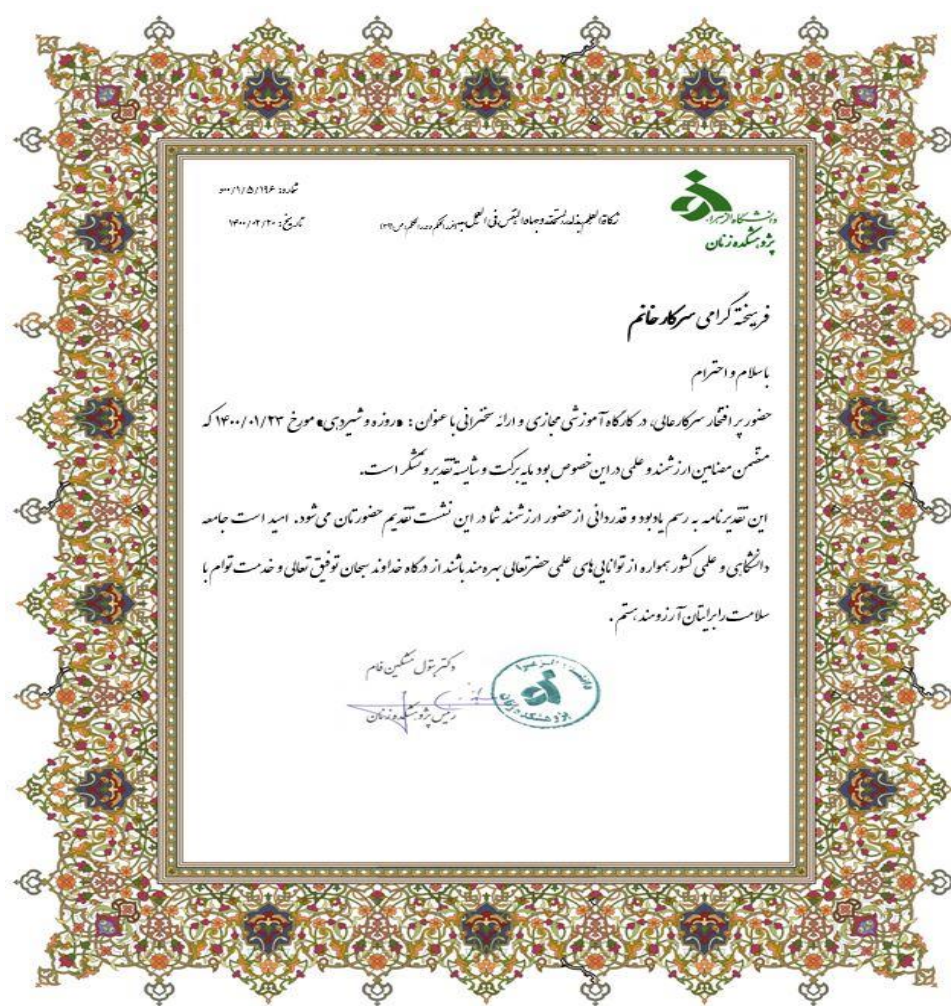 شماره: ۰۰۰/۱/۵/۱۹۶
تاریخ: ۱۴۰۰/۰۲/۲۰
زکاة العلم بذله لمستحقه و اجهاد النفس فی العمل به
دانشگاه الزهرا
پژوهشکده زنان
فرهیخته گرامی سرکار خانم
باسلام و احترام
حضور پر افتخار سرکارعالی، در کارگاه آموزشی مجازی و ارائه سخنرانی با عنوان: «روزه و شیردهی» مورخ ۱۴۰۰/۰۱/۲۳ که
متضمن مضامین ارزشمند و علمی در این خصوص بود مایه برکت و شایسته تقدیر و تشکر است.
این تقدیرنامه به رسم یادبود و قدردانی از حضور ارزشمند شما در این نشست تقدیم حضورتان می‌شود. امید است جامعه
دانشگاهی و علمی کشور همواره از توانایی‌های علمی حضرتعالی بهره مند باشند از درگاه خداوند سبحان توفیق تعالی و خدمت توام با
سلامت را برایتان آرزومند هستم.
دکتر بتول مشگین فام
رئیس پژوهشکده زنان
دانشگاه الزهرا
پژوهشکده زنان